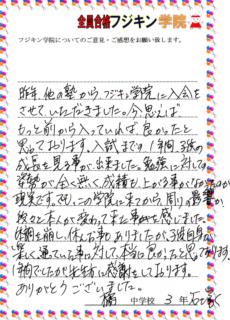 全員合格フジキン学院
フジキン学院についてのご意見・ご感想をお願い致します。
昨年、他の塾から、フジキン学院に入会を
させていただきました。今思えば
もっと前から入っていれば良かったと
思っております。入試まで1年間、3孩の
成長を見る事が出来ました。勉強に対しての
姿勢が全く無く、成績も上がる事がなかったのが
現実です。でも、この学院に来てから、周りの影響か
段々と本人が変わって来た事を感じました。
体調を崩し、休んだ事もありましたが、3孩自身が
楽しく通っている事に対して、本当に良かったと思っております。
1年間でしたが先生方に感謝をしております。
ありがとうございました。
中学校 3年